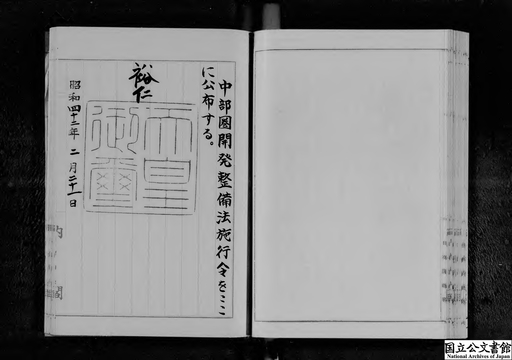 中部圏開発整備法施行令をここ
に公布する。
裕仁
天皇御璽
昭和四十三年 二月二十一日
内閣
国立公文書館
National Archives of Japan